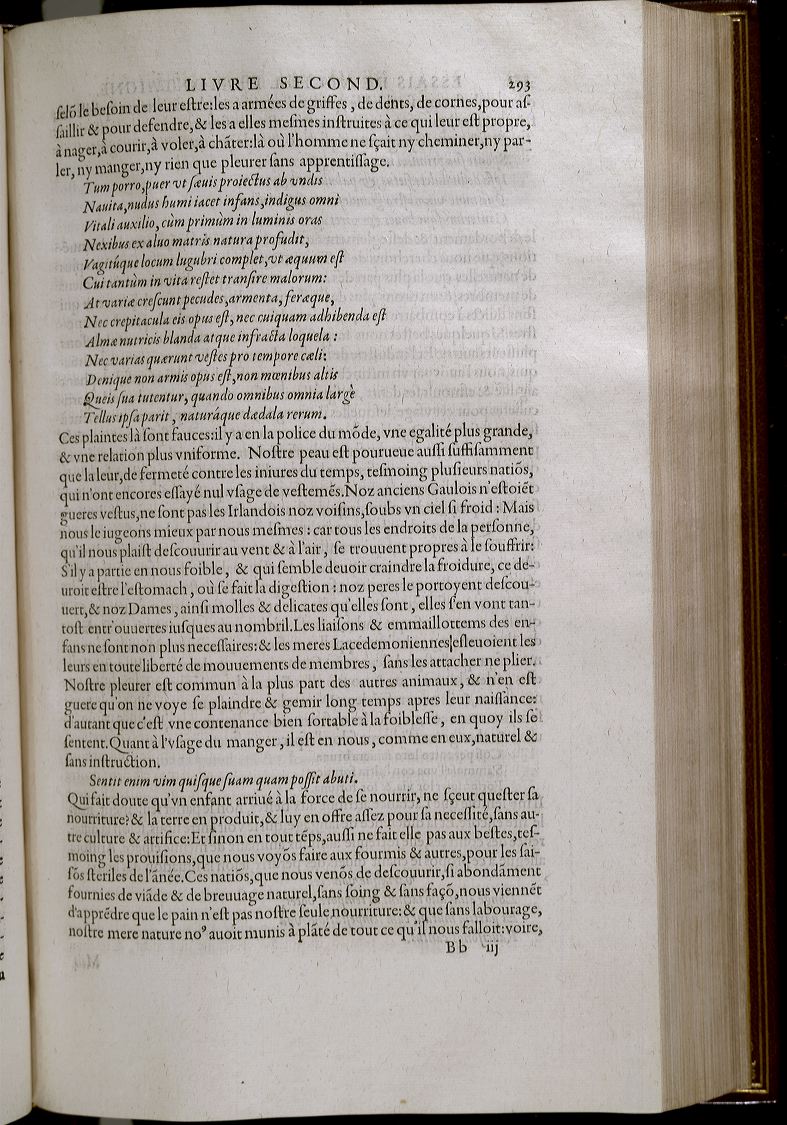 LIVRE SECOND. 293
ſelō le beſoin de leur eſtre: les a armées de griffes, de dents, de cornes, pour aſ-
ſaillir & pour defendre, & les a elles meſmes inſtruites à ce qui leur eſt propre,
à nager, à courir, à voler, à chāter: là où l'homme ne ſçait ny cheminer, ny par-
ler, ny manger, ny rien que pleurer ſans apprentiſſage.
Tum porro, puer vt ſæuis proiectus ab vndis
Nauita, nudus humi iacet infans, indigus omni
Vitali auxilio, cùm primùm in luminis oras
Nexibus ex aluo matris natura profudit,
Vagitúque locum lugubri complet, vt æquum eſt
Cui tantùm in vita reſtet tranſire malorum:
At variæ creſcunt pecudes, armenta, feræque,
Nec crepitacula eis opus eſt, nec cuiquam adhibenda eſt
Almæ nutricis blanda atque infracta loquela:
Nec varias quærunt veſtes pro tempore cæli:
Denique non armis opus eſt, non mœnibus altis
Queis ſua tutentur, quando omnibus omnia largè
Tellus ipſa parit, naturáque dædala rerum.
Ces plaintes là ſont fauces: il y a en la police du mōde, vne egalité plus grande,
& vne relation plus vniforme. Noſtre peau eſt pourueue auſſi ſuffiſamment
que la leur, de fermeté contre les iniures du temps, teſmoing pluſieurs natiōs,
qui n'ont encores eſſayé nul vſage de veſtemēs. Noz anciens Gaulois n'eſtoiēt
gueres veſtus, ne ſont pas les Irlandois noz voiſins, ſoubs vn ciel ſi froid: Mais
nous le iugeons mieux par nous meſmes: car tous les endroits de la perſonne,
qu'il nous plaiſt deſcouurir au vent & à l'air, ſe trouuent propres à le ſouffrir:
S'il y a partie en nous foible, & qui ſemble deuoir craindre la froidure, ce de-
uroit eſtre l'eſtomach, où ſe fait la digeſtion: noz peres le portoyent deſcou-
uert, & noz Dames, ainſi molles & delicates qu'elles ſont, elles ſ'en vont tan-
toſt entr'ouuertes iuſques au nombril. Les liaiſons & emmaillottems des en-
fans ne ſont non plus neceſſaires: & les meres Lacedemoniennes eſleuoient les
leurs en toute liberté de mouuements de membres, ſans les attacher ne plier.
Noſtre pleurer eſt commun à la plus part des autres animaux, & n'en eſt
guere qu'on ne voye ſe plaindre & gemir long temps apres leur naiſſance:
d'autant que c'eſt vne contenance bien ſortable à la foibleſſe, en quoy ils ſe
ſentent. Quant à l'vſage du manger, il eſt en nous, comme en eux, naturel &
ſans inſtruction.
Sentit enim vim quiſque ſuam quam poſſit abuti.
Qui fait doute qu'vn enfant arriué à la force de ſe nourrir, ne ſçeut queſter ſa
nourriture? & la terre en produit, & luy en offre aſſez pour ſa neceſſité, ſans au-
tre culture & artifice: Et ſinon en tout tēps, auſſi ne fait elle pas aux beſtes, teſ-
moing les prouiſions, que nous voyōs faire aux fourmis & autres, pour les ſai-
ſōs ſteriles de l'ānée. Ces natiōs, que nous venōs de deſcouurir, ſi abondāment
fournies de viāde & de breuuage naturel, ſans ſoing & ſans façō, nous viennēt
d'apprēdre que le pain n'eſt pas noſtre ſeule nourriture: & que ſans labourage,
noſtre mere nature noꝰ auoit munis à plāté de tout ce qu'il nous falloit: voire,
Bb iij